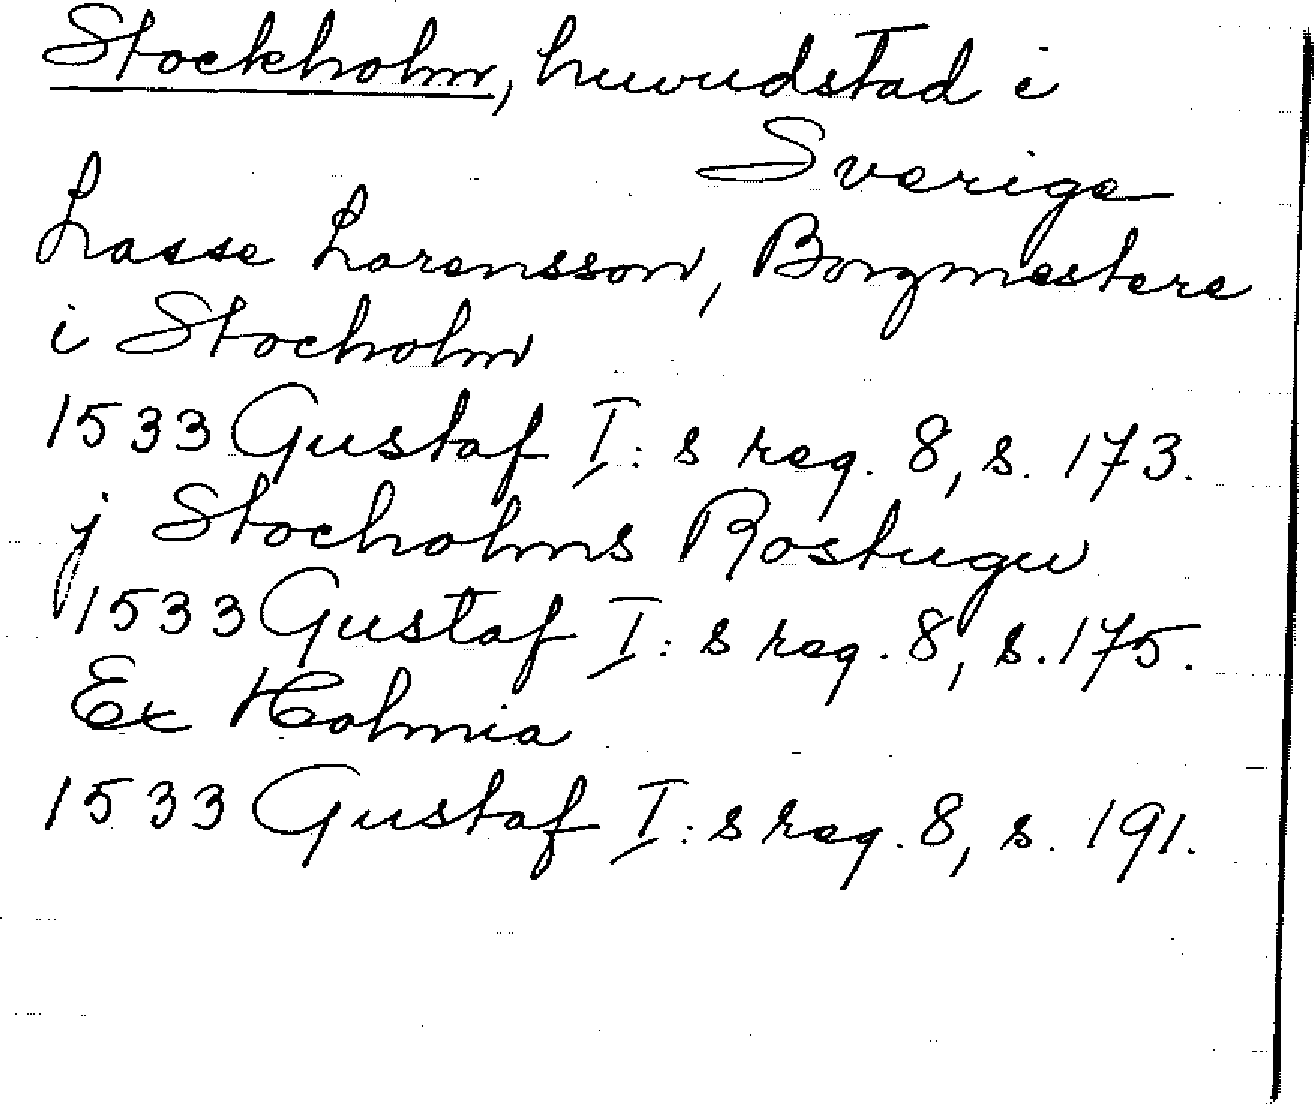 Stockholm, huvudstad i
Sverige
Lasse Larensson, Borgmestere
i Stocholm
1533 Gustaf I: s reg. 8, s. 173.
j Stocholms Rostugu
1533 Gustaf I: s reg. 8, s. 175.
Ex Holmia
1533 Gustaf I: s reg. 8, s. 191.